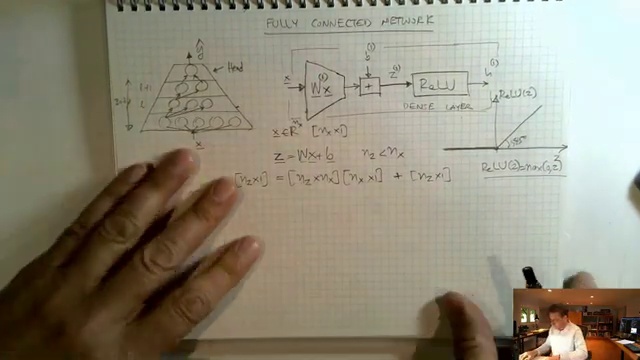 FULLY CONNECTED NETWORK
ŷ
Head
L+1
L
x
x
W^(1)x
b^(1)
+
z^(1)
ReLU
h^(1)
n_x
DENSE LAYER
x∈R [n_x×1]
z = Wx+b n_z < n_x
[n_z×1] = [n_z×n_x][n_x×1] + [n_z×1]
ReLU(z)
45°
z
ReLU(z)=max(0,z)